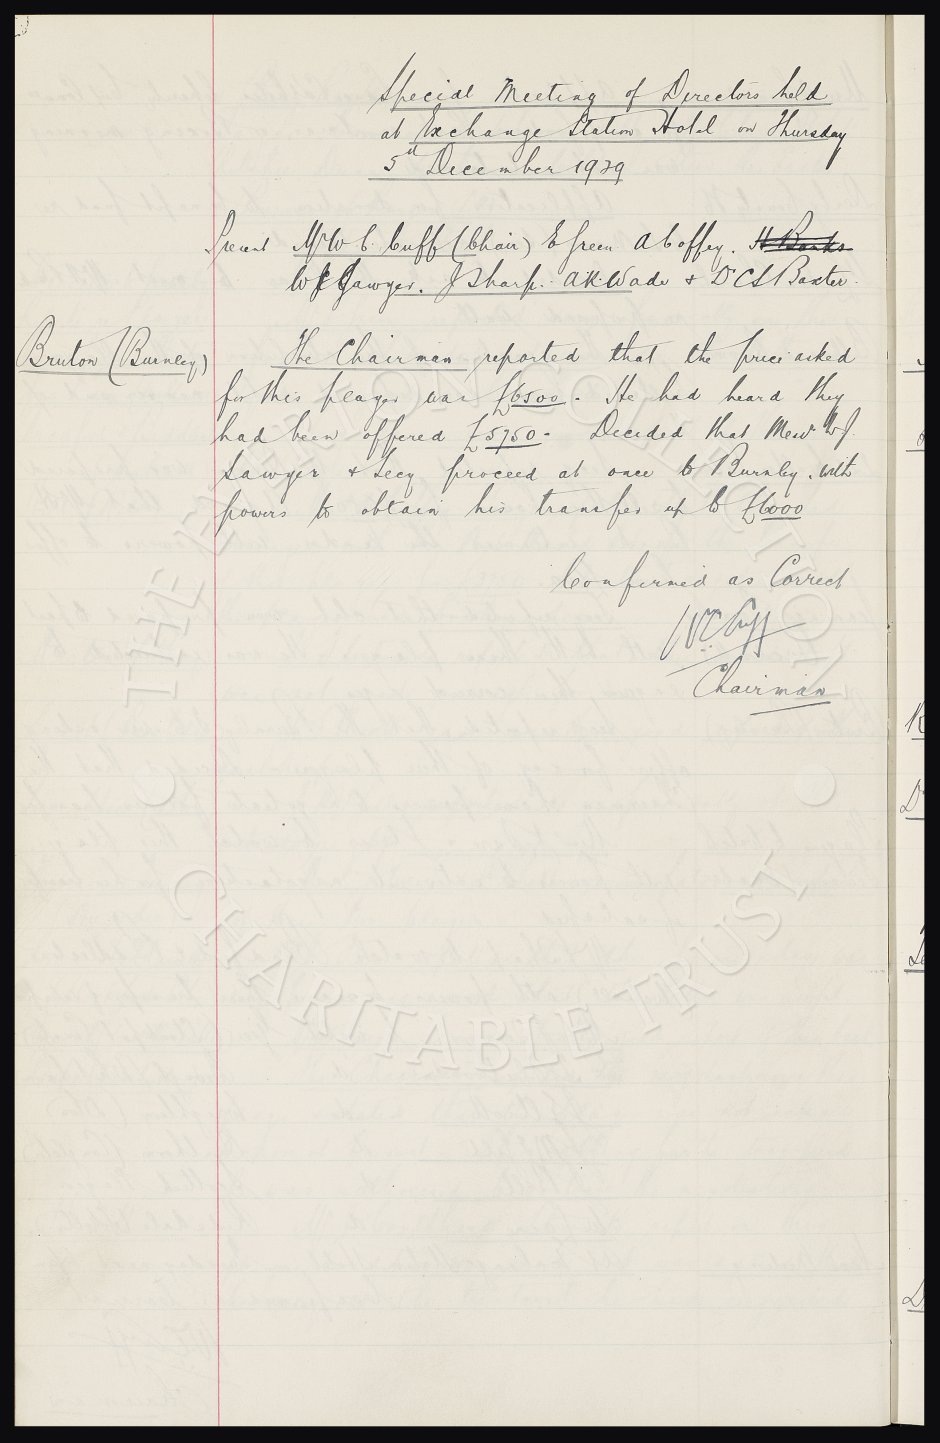 Special Meeting of Directors held
at Exchange Station Hotel on Thursday
5th December 1929
Present Mr W C Cuff (Chair) E Green A Coffey. H Banks
W J Sawyer. J Sharp. A K Wade & Dr C S Baxter.
Bruton (Burnley) The Chairman reported that the price asked
for this player was £6500. He had heard they
had been offered £5750. Decided that Messrs W J.
Sawyer & Secy proceed at once to Burnley. with
powers to obtain his transfer up to £6000
Confirmed as Correct
W C Cuff
Chairman
THE EVERTON COLLECTION
CHARITABLE TRUST